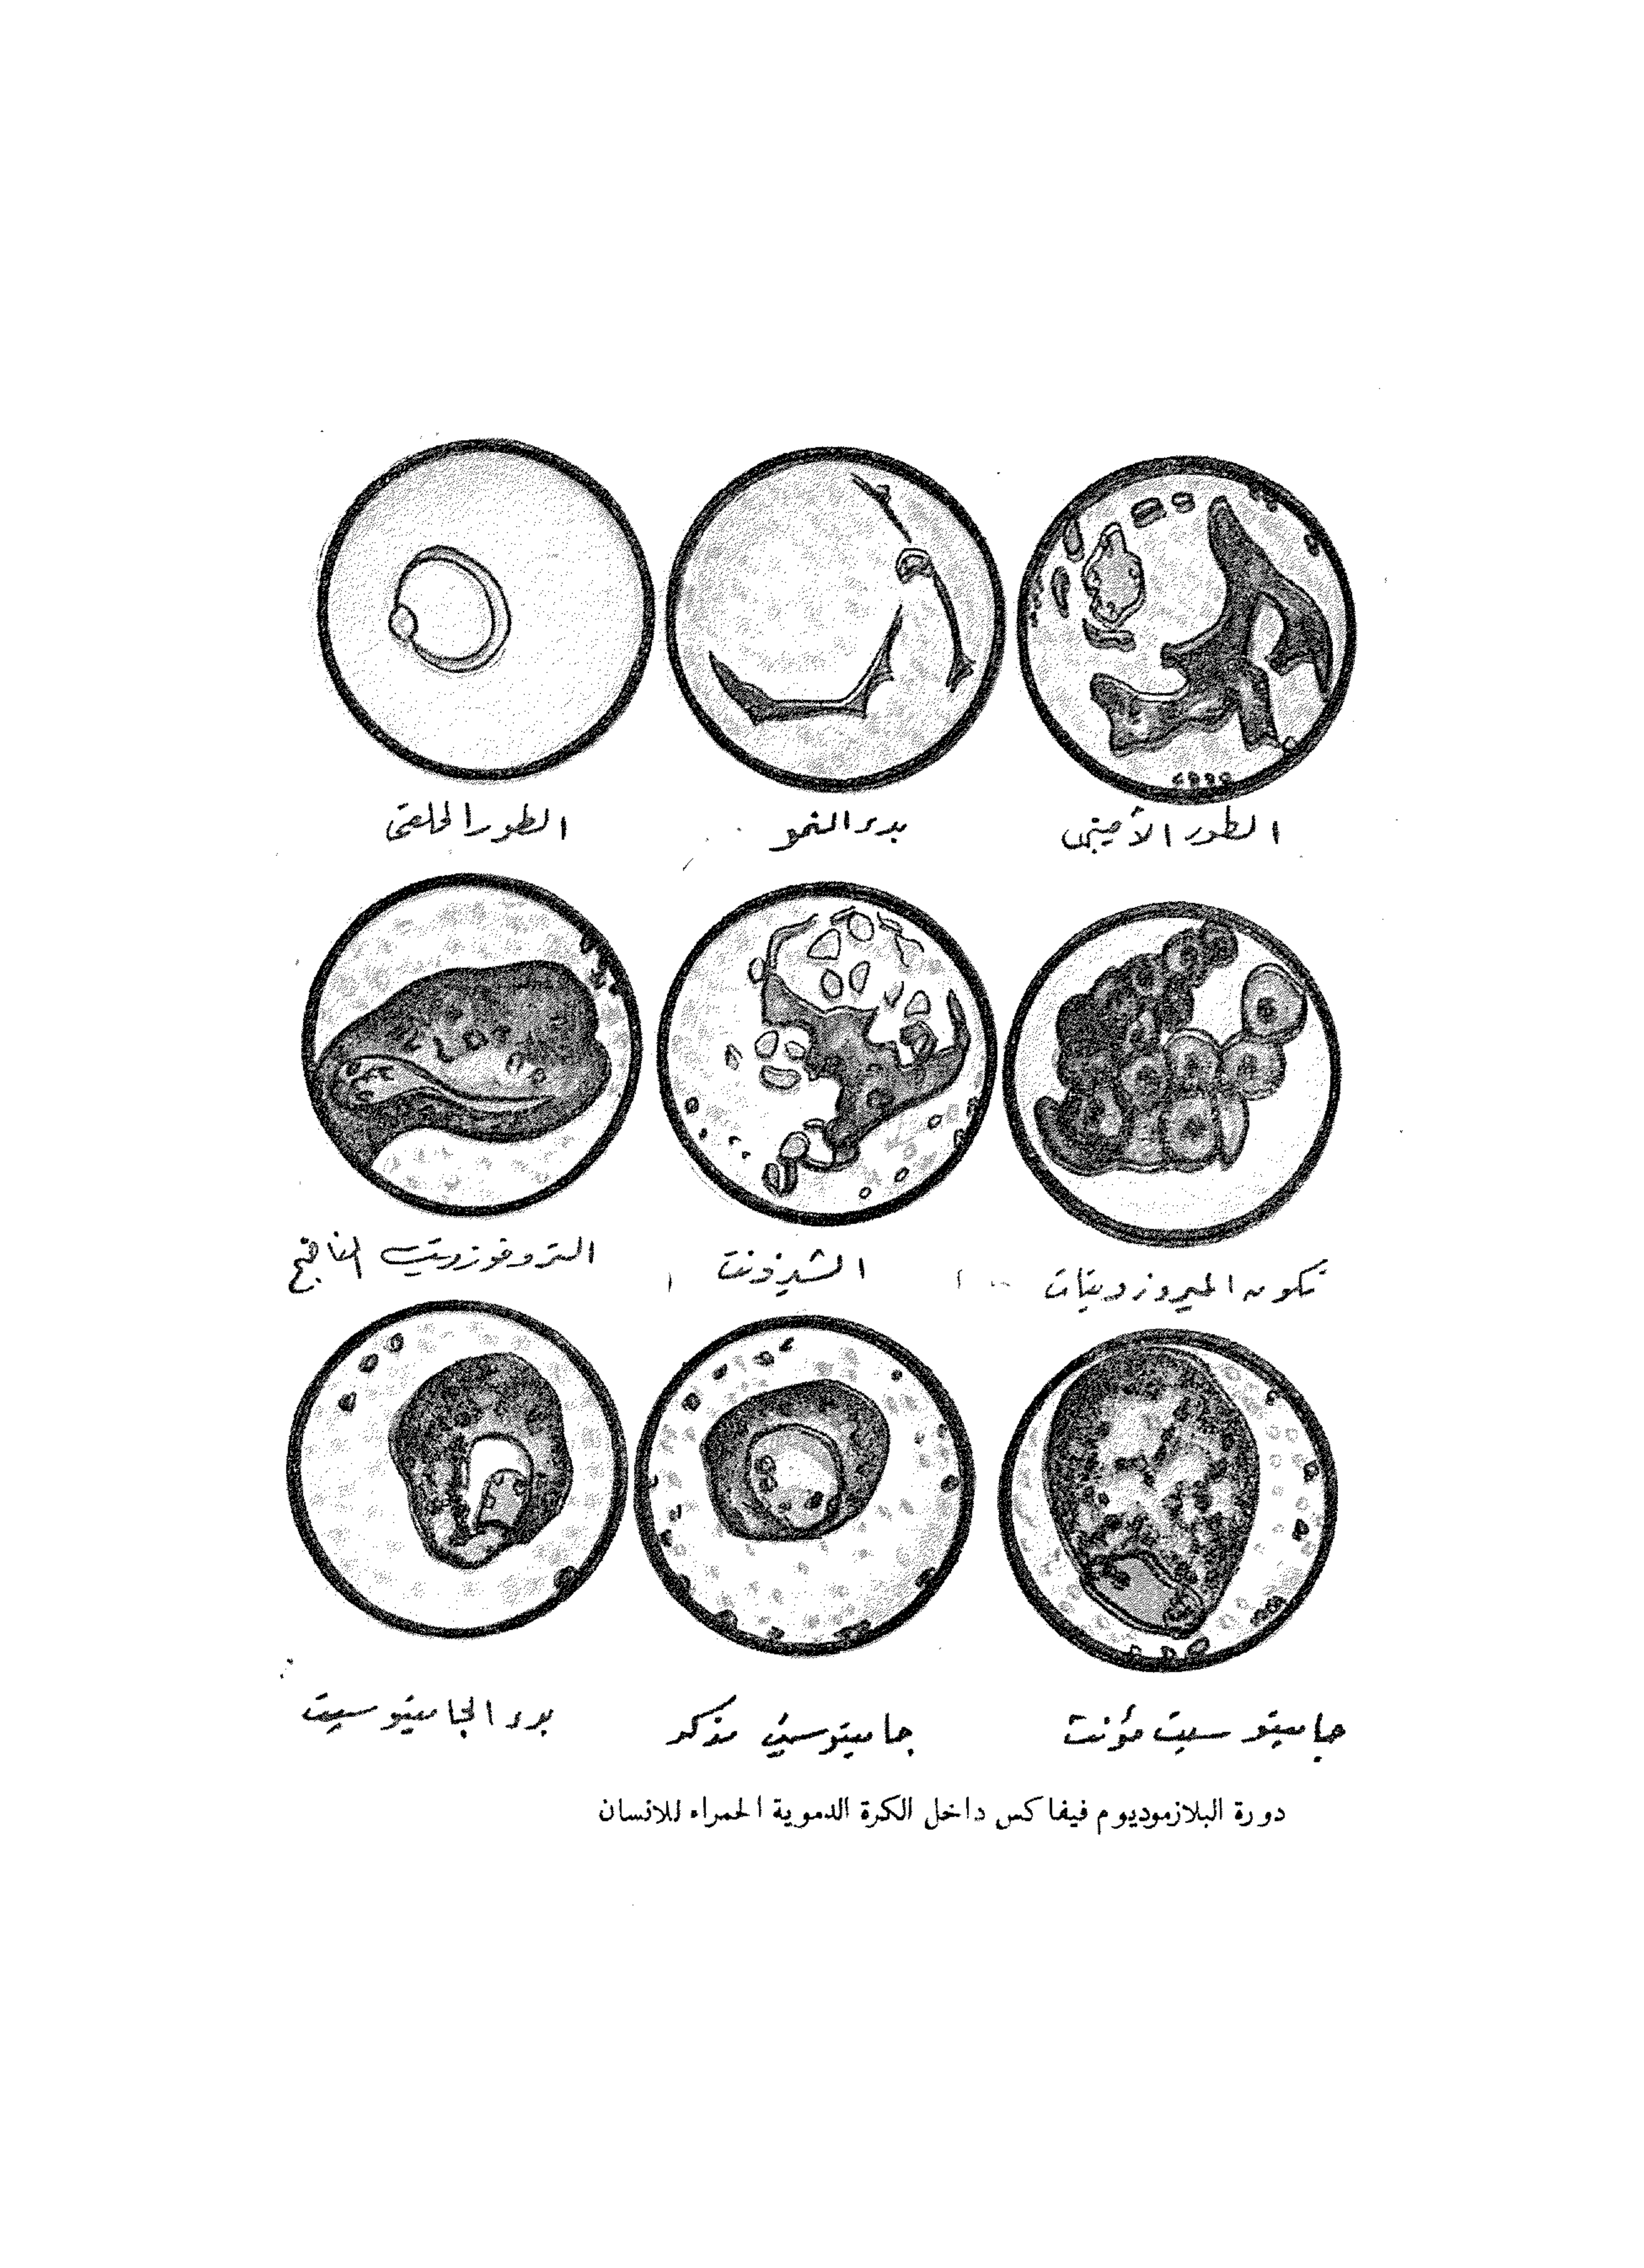 الطور الأميبى
بدء النمو
الطور الحلقى
تكون الميروزويتات
الشيزونت
التروفوزويت الناضج
جاميتوسيت مؤنث
جاميتوسيت مذكر
بدء الجاميتوسيت
دورة البلازموديوم فيفاكس داخل الكرة الدموية الحمراء للانسان